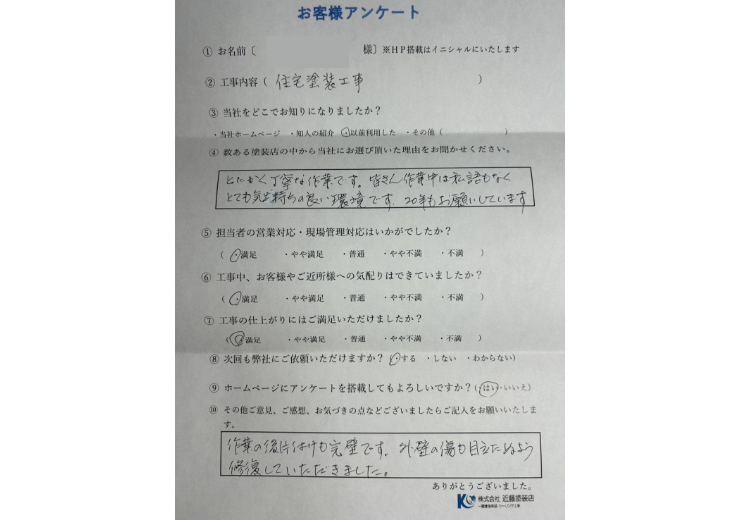 お客様アンケート
① お名前〔 様〕※HP搭載はイニシャルにいたします
② 工事内容（ 住宅塗装工事 ）
③ 当社をどこでお知りになりましたか？
・当社ホームページ ・知人の紹介 ・以前利用した ・その他（ ）
④ 数ある塗装店の中から当社にお選び頂いた理由をお聞かせください。
とにかく丁寧な作業です。皆さん作業中は私語もなく
とても気持ちの良い環境です。20年もお願いしています
⑤ 担当者の営業対応・現場管理対応はいかがでしたか？
（ ・満足 ・やや満足 ・普通 ・やや不満 ・不満 ）
⑥ 工事中、お客様やご近所様への気配りはできていましたか？
（ ・満足 ・やや満足 ・普通 ・やや不満 ・不満 ）
⑦ 工事の仕上がりにはご満足いただけましたか？
（ ・満足 ・やや満足 ・普通 ・やや不満 ・不満 ）
⑧ 次回も弊社にご依頼いただけますか？（・する ・しない ・わからない）
⑨ ホームページにアンケートを搭載してもよろしいですか？（はい・いいえ）
⑩ その他ご意見、ご感想、お気づきの点などございましたらご記入をお願いいたしま
す。
作業の後片付けも完璧です。外壁の傷も目立たぬよう
修復していただきました。
ありがとうございました。
株式会社 近藤塗装店